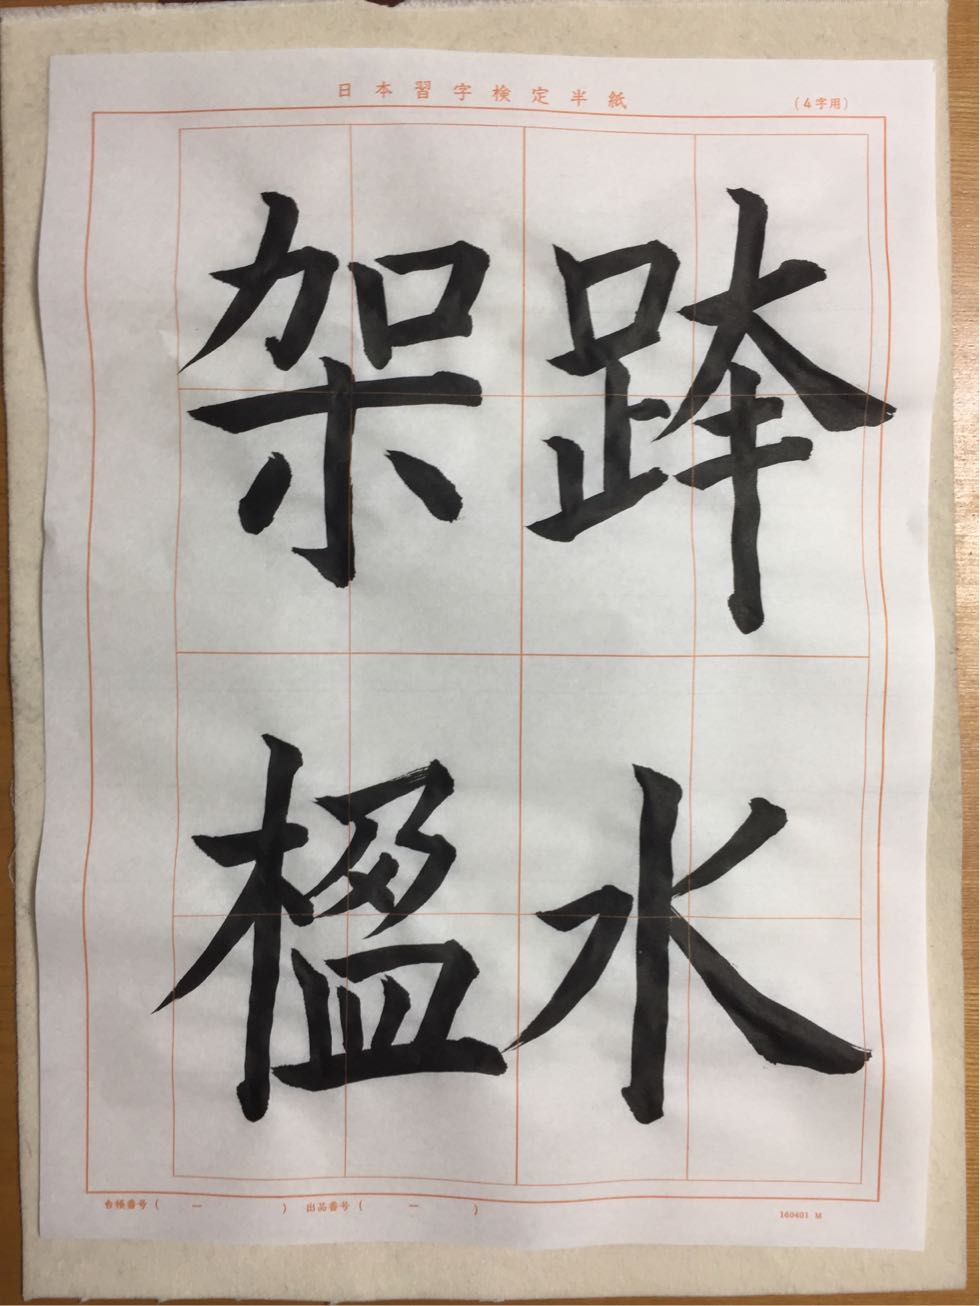 日本習字検定半紙
(4字用)
跨水
架楹
台帳番号(　ー　)　出品番号(　ー　)
160401 M